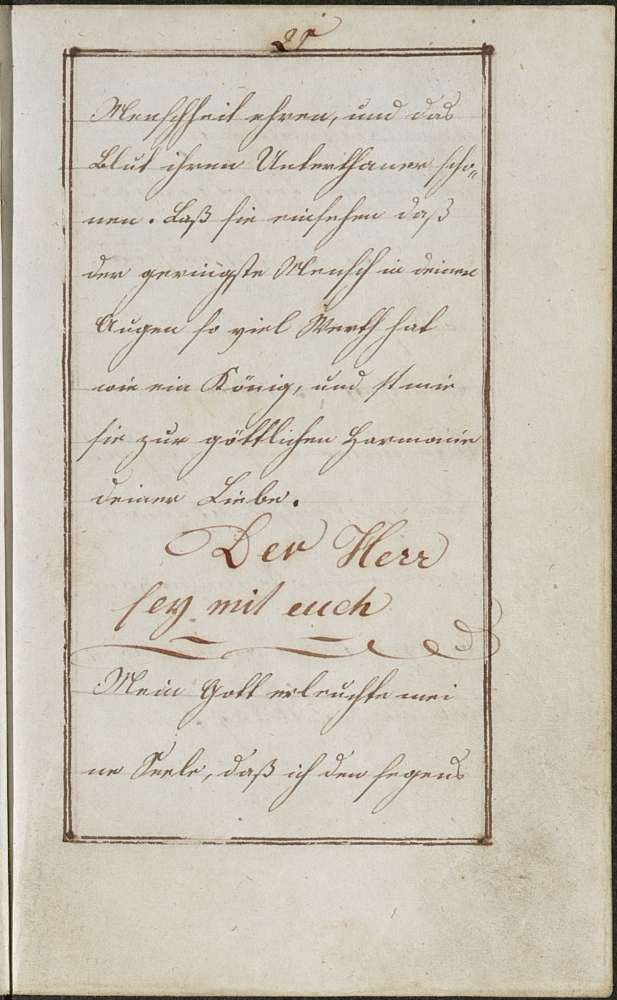 Menschheit ehren, und das
Blut ihren Unterthaner scho„
nen. Laß sie einsehen daß
der geringste Mensch in deinen
Augen so viel Werth hat
wie ein König, und stimm
sie zur göttlichen Harmonie
deiner Liebe.
Der Herr
sey mit euch
Mein Gott erleuchte mei
ne Seele, daß ich den segens